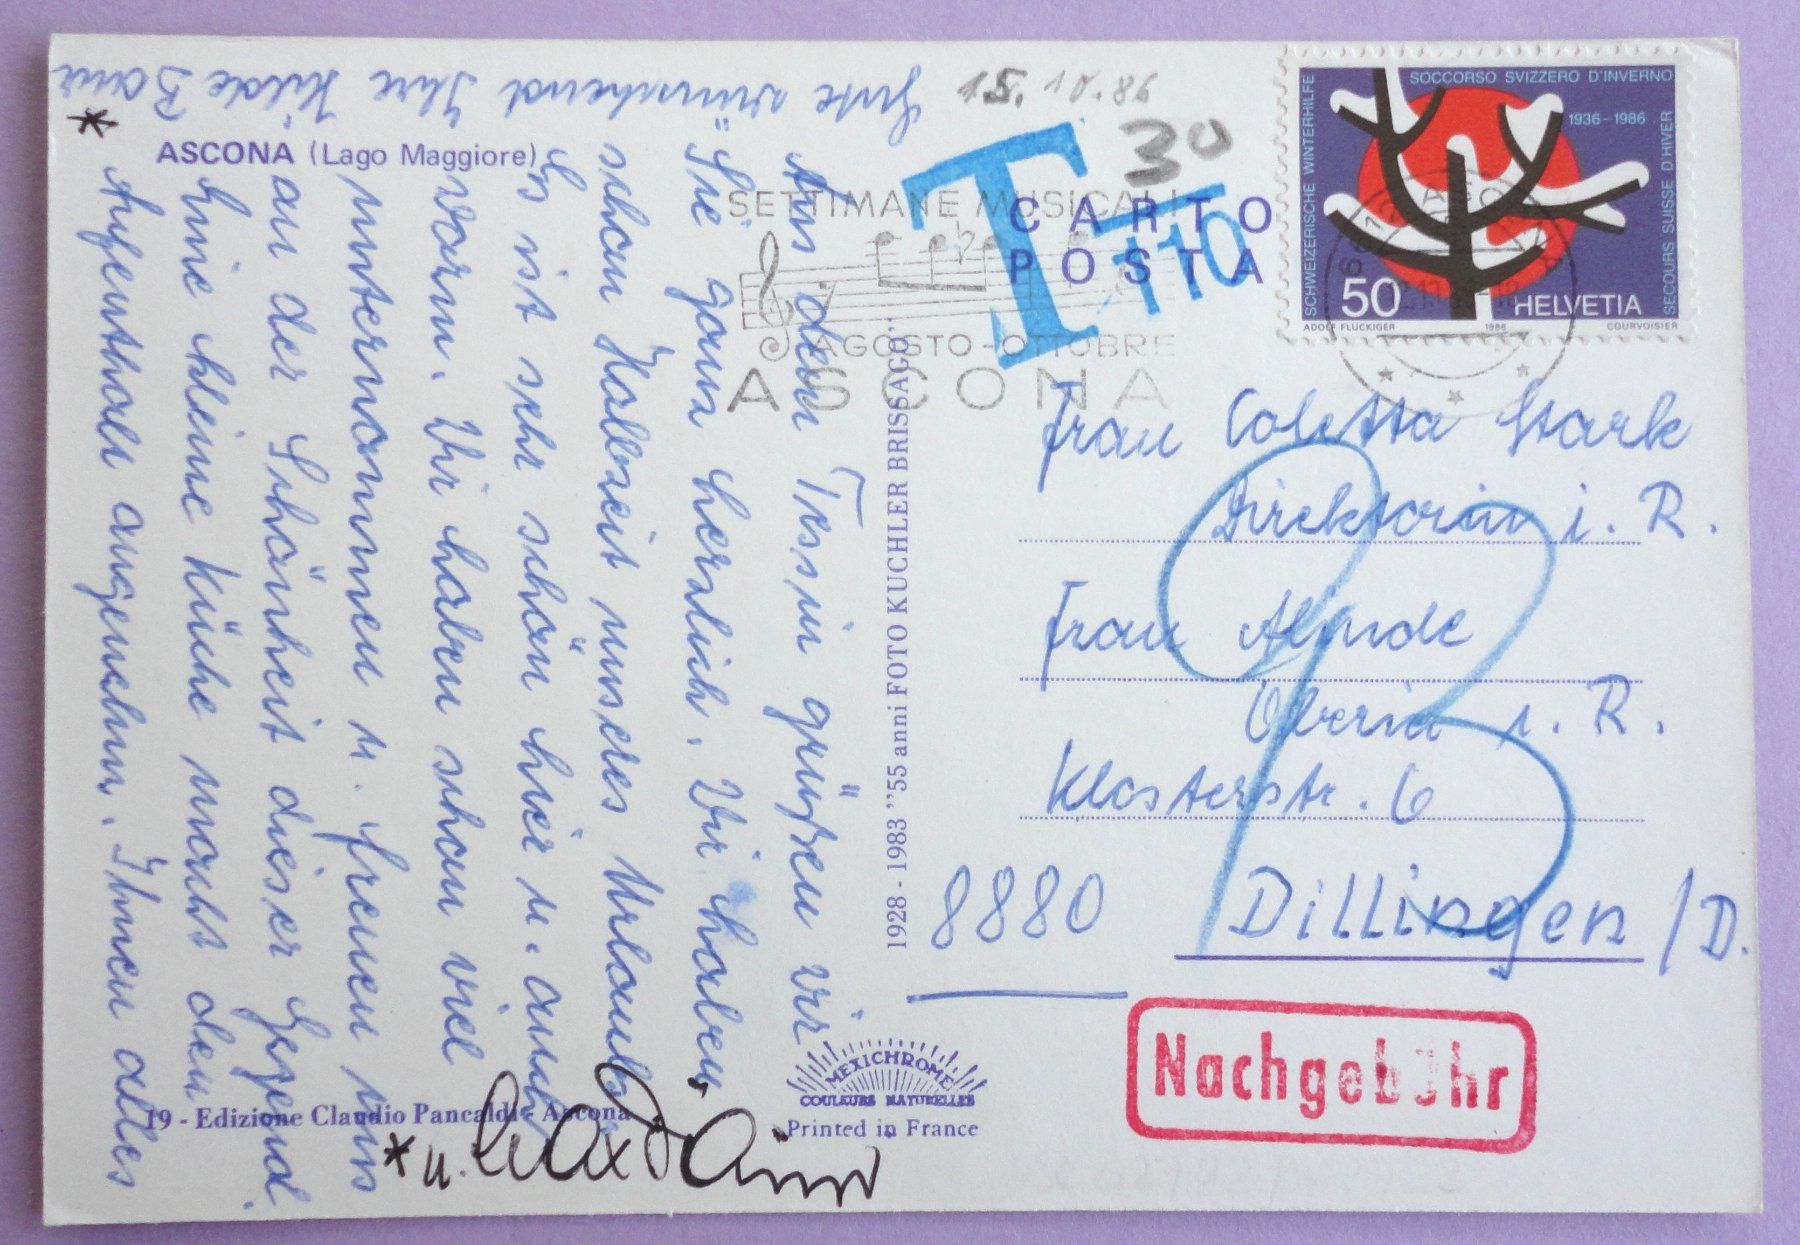 15.10.86
30
T 110
ASCONA (Lago Maggiore)
CARTO
POSTA
SETTIMANE MUSICALI
AGOSTO-OTTOBRE
ASCONA
SOCCORSO SVIZZERO D'INVERNO
1936-1986
SCHWEIZERISCHE WINTERHILFE
SECOURS SUISSE D'HIVER
50
HELVETIA
ADOLF FLÜCKIGER 1986 COURVOISIER
Aus dem Tessin grüßen wir
Sie ganz herzlich. Wir haben
schon Halbzeit unseres Urlaubs.
Es ist sehr schön hier u. auch
warm. Wir haben schon viel
unternommen u. freuen uns
an der Schönheit dieser Gegend.
Eine kleine Küche macht den
Aufenthalt angenehm. Ihnen alles
Gute wünschend Ihre Hilde
*
* u.
1928-1983 "55 anni FOTO KUCHLER BRISSAGO"
Frau Coletta Stark
Direktorin i. R.
Frau
Oberin i. R.
Klosterstr. 6
8880 Dillingen /D.
Nachgebühr
MEXICHROME
COULEURS NATURELLES
Printed in France
19 - Edizione Claudio Pancaldi - Ascona